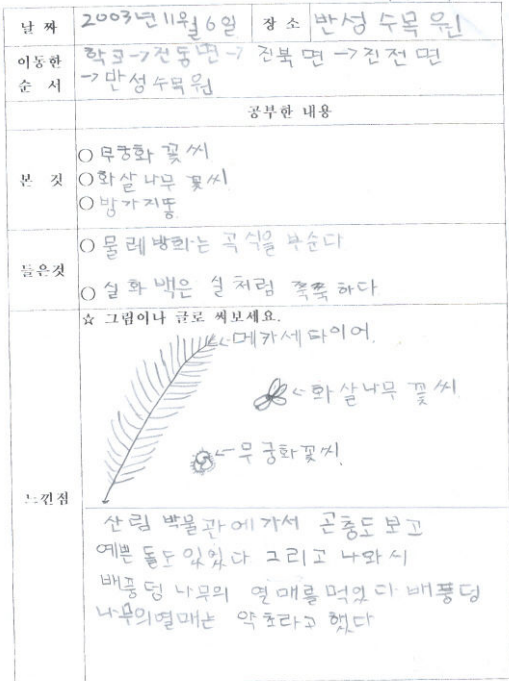 날 짜 2003년 11월 6일 장 소 반성수목원
이동한 학교→진동면→ 진북면→진전면
순 서 →반성수목원
공부한 내용
○ 무궁화 꽃씨
본 것 ○ 화살나무 꽃씨
○ 방가지똥
○ 물레방화는 곡식을 부순다
들은것
○ 실화백은 실처럼 쭉쭉하다
☆ 그림이나 글로 써보세요.
←메카세타이어.
←화살나무 꽃씨
←무궁화꽃씨.
느낀점
산림 박물관에가서 곤충도보고
예쁜 돌도 있있다 그리고 나와서
배풍덩 나무의 열매를 먹었다 배풍덩
나무의열매는 약초라고 했다